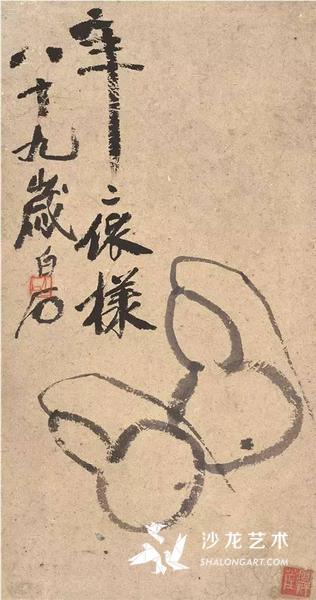 年〻依樣
八十九歲白石
沙龙艺术
SHALONGART.COM